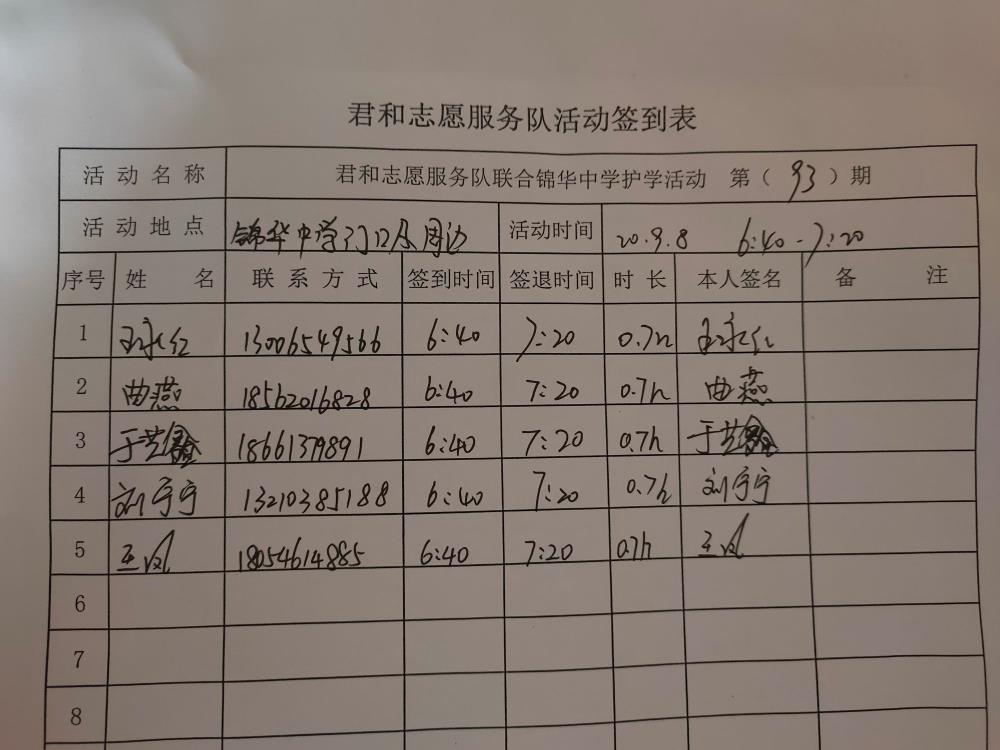 君和志愿服务队活动签到表
活动名称 君和志愿服务队联合锦华中学护学活动 第（93）期
活动地点 锦华中学门口及周边 活动时间 20.9.8 6:40-7:20
序号 姓名 联系方式 签到时间 签退时间 时长 本人签名 备注
1 王永红 13006549566 6:40 7:20 0.7h 王永红
2 曲燕 18562016828 6:40 7:20 0.7h 曲燕
3 于兰 18661379891 6:40 7:20 0.7h 于兰
4 刘宁宁 13210385188 6:40 7:20 0.7h 刘宁宁
5 王凤 18054614885 6:40 7:20 0.7h 王凤
6
7
8